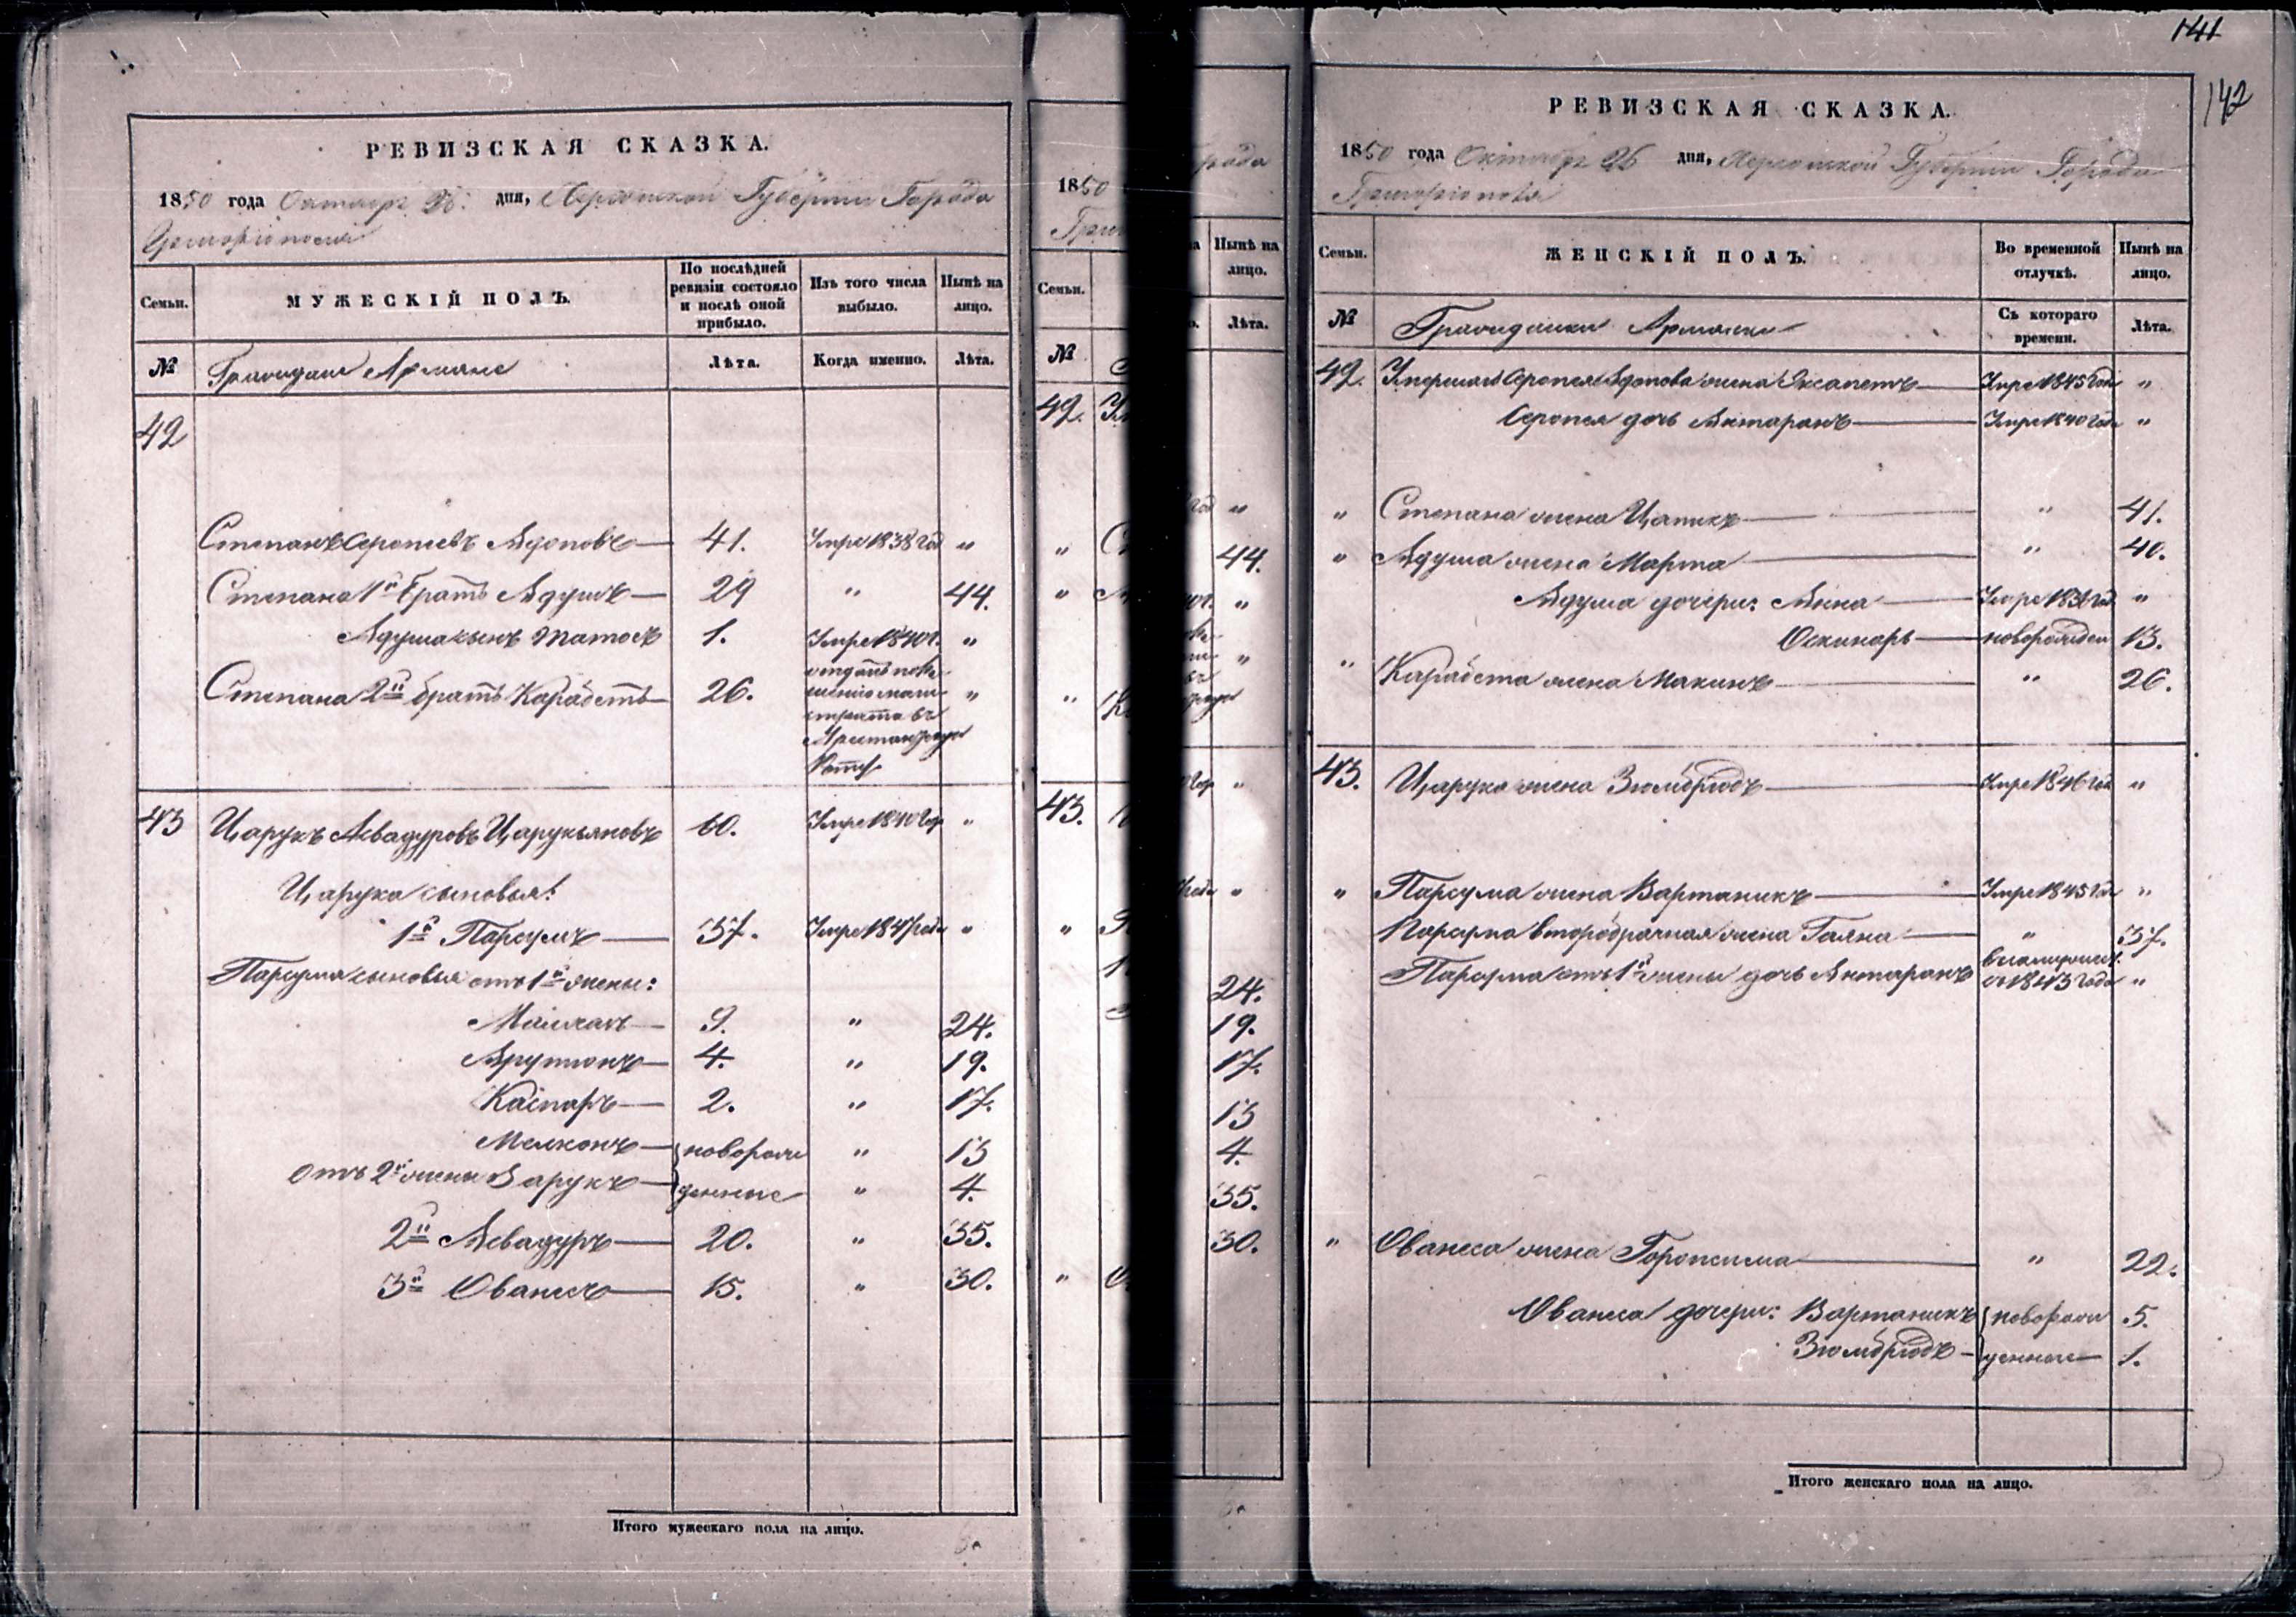 РЕВИЗСКАЯ СКАЗКА.
1850 года Октября 26 дня, Херсонской Губернии Города
Григориополя
Семьи.
МУЖЕСКІЙ ПОЛЪ.
По послѣдней ревизіи состояло и послѣ оной прибыло.
Изъ того числа выбыло.
Нынѣ на лицо.
№
Граждане Армяне
Лѣта.
Когда именно.
Лѣта.
42
Степанъ Серопевъ Адоповъ 41. Умре 1838 год "
Степана 1й братъ Адушъ 29 " 44.
Адуша сынъ Татосъ 1. Умре 1840 г. "
Степана 2й братъ Карабетъ 26. отданъ по Ре- "
шенію маги-
страта въ
Арестанскую
Роту
43 Царукъ Авадуровъ Царукьяновъ 60. Умре 1840 год "
Царука сыновья:
1й Парсумъ 37. Умре 1847 года "
Парсума сыновья отъ 1й жены:
9. " 24.
Арутюнъ 4. " 19.
Каспаръ 2. " 17.
Мелконъ новорож " 13
отъ 2й жены Зарукъ денные " 4.
2й Авадуръ 20. " 35.
3й Ованесъ 15. " 30.
Итого мужескаго пола на лицо.
1850
Семьи.
№
42.
"
"
"
43.
"
"
Нынѣ на лицо.
Лѣта.
"
44.
"
"
"
"
24.
19.
17.
13
4.
35.
30.
141
142
РЕВИЗСКАЯ СКАЗКА.
1850 года Октября 26 дня, Херсонской Губерніи Города
Григориополя
Семьи.
ЖЕНСКІЙ ПОЛЪ.
Во временной отлучкѣ.
Нынѣ на лицо.
№
Гражданки Армянки
Съ котораго времени.
Лѣта.
42. Умершаго Серопея Адопова жена Ексапетъ Умре 1845 года "
Серопея дочь Антарамъ Умре 1840 года "
" Степана жена Цатикъ " 41.
" Адуша жена Марта " 40.
Адуша дочери: Анна "
Оскинаръ новорожден 13.
" Карабета жена Макинъ " 26.
43. Царука жена Зюмбрюдъ Умре 1846 год "
" Парсума жена Вартаникъ Умре 1845 год "
Парсума второбрачная жена Гаяна " 37.
Парсума отъ 1й жены дочь Антарамъ въ замужест. съ 1843 года "
" Ованеса жена Горопсима " 22.
Ованеса дочери: Вартаникъ новорож 5.
Зюмбрюдъ денные 1.
Итого женскаго пола на лицо.